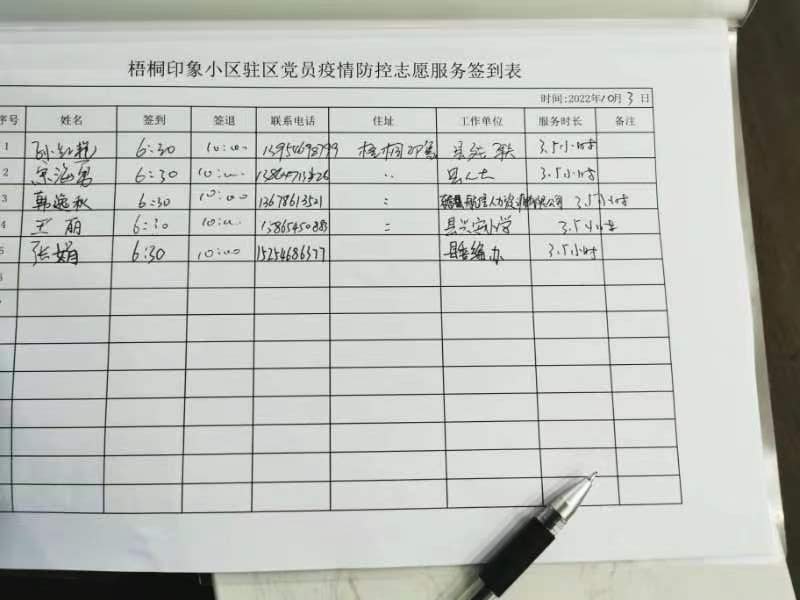 梧桐印象小区驻区党员疫情防控志愿服务签到表
时间:2022年10月3日
序号 姓名 签到 签退 联系电话 住址 工作单位 服务时长 备注
1 6:30 10:00 梧桐印象 3.5小时
2 6:30 10:00 〃 县人大 3.5小时
3 韩逸秋 6:30 10:00 13678613521 〃 3.5小时
4 王丽 6:30 10:00 〃 县兴安小学 3.5小时
5 张娟 6:30 10:00 15254686377 县委编办 3.5小时
6